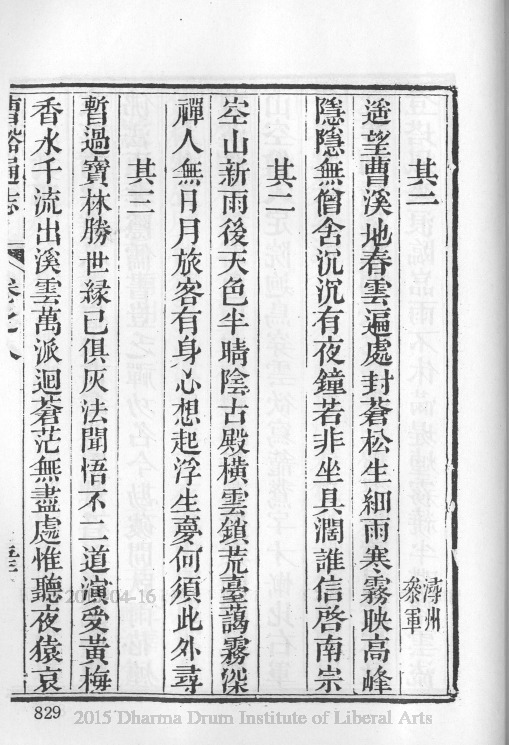 其二
潯州
叅軍
遥望曹溪地春雲遍處封蒼松生細雨寒霧映高峰
隱隱無僧舍沉沉有夜鐘若非坐具濶誰信啓南宗
其二
空山新雨後天色半晴陰古殿橫雲鎖荒臺藹霧深
禪人無日月旅客有身心想起浮生夢何須此外尋
其三
暫過寶林勝世緣已俱灰法聞悟不二道演受黃梅
香水千流出溪雲萬派迴蒼茫無盡處惟聽夜猿哀
曹谿通志 卷之八
829
2015 Dharma Drum Institute of Liberal Arts